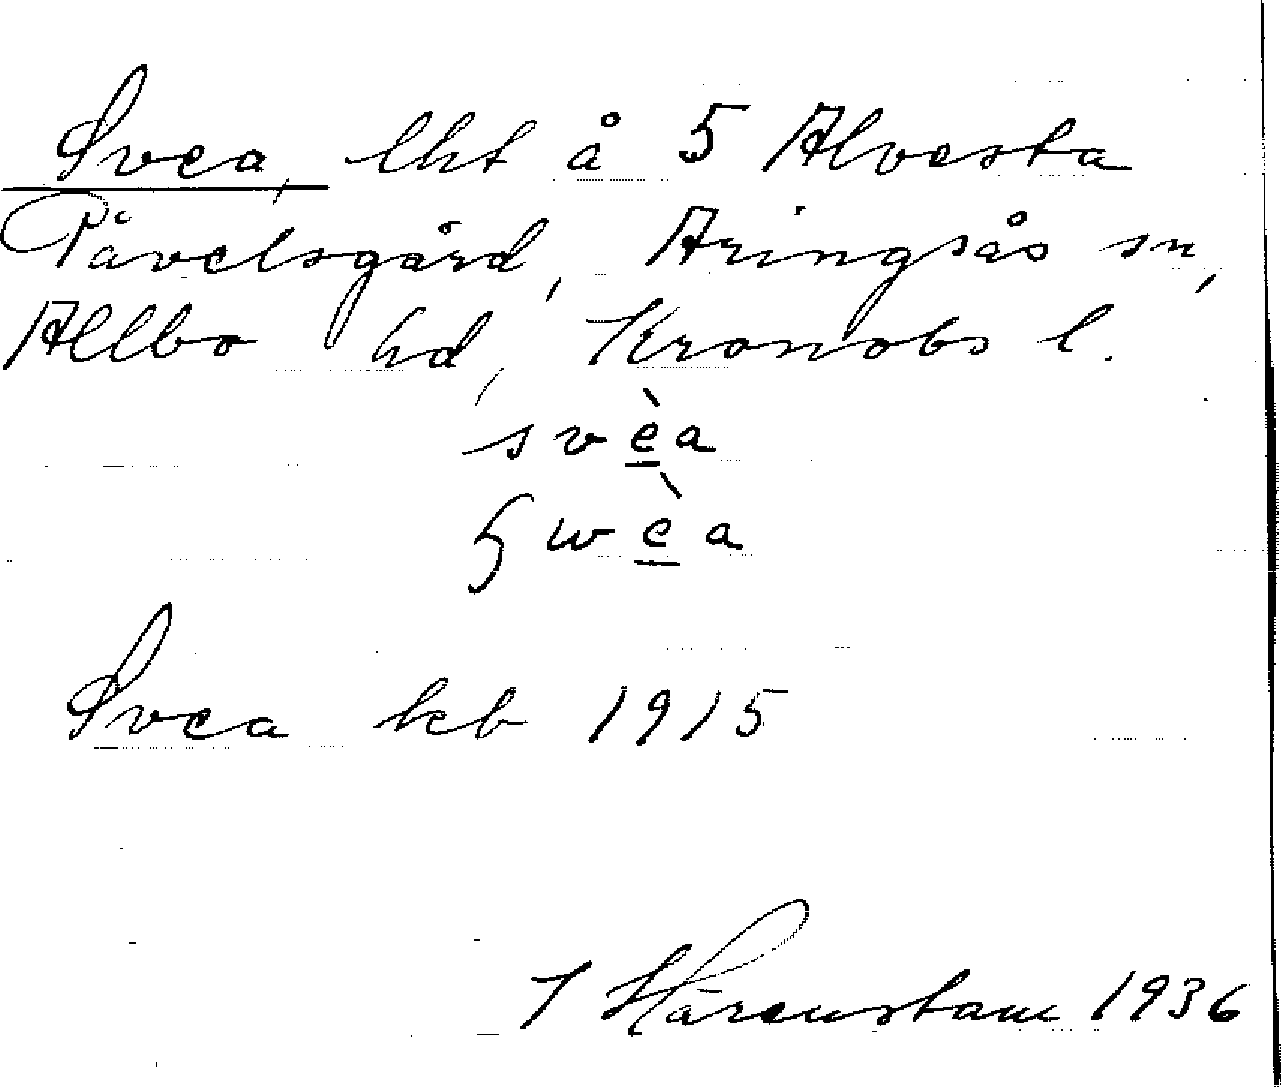 Svea, lht å 5 Alvesta
Påvelsgård, Aringsås sn,
Allbo hd, Kronobs l.
svèa
ʂwèa
Svea kb 1915
Härenstam 1936